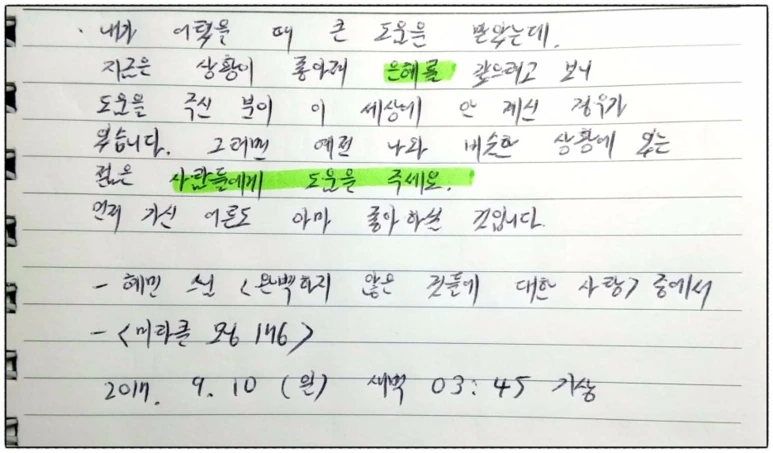 · 내가 어렵을 때 큰 도움을 받았는데,
지금은 상황이 좋아져 은혜를 갚으려고 보니
도움을 주신 분이 이 세상에 안 계신 경우가
있습니다. 그러면 예전 나와 비슷한 상황에 있는
젊은 사람들에게 도움을 주세요.
먼저 가신 어른도 아마 좋아하실 것입니다.
- 혜민 스님 <완벽하지 않은 것들에 대한 사랑> 중에서
- <미라클 모닝 146>
2017. 9. 10 (일) 새벽 03:45 기상